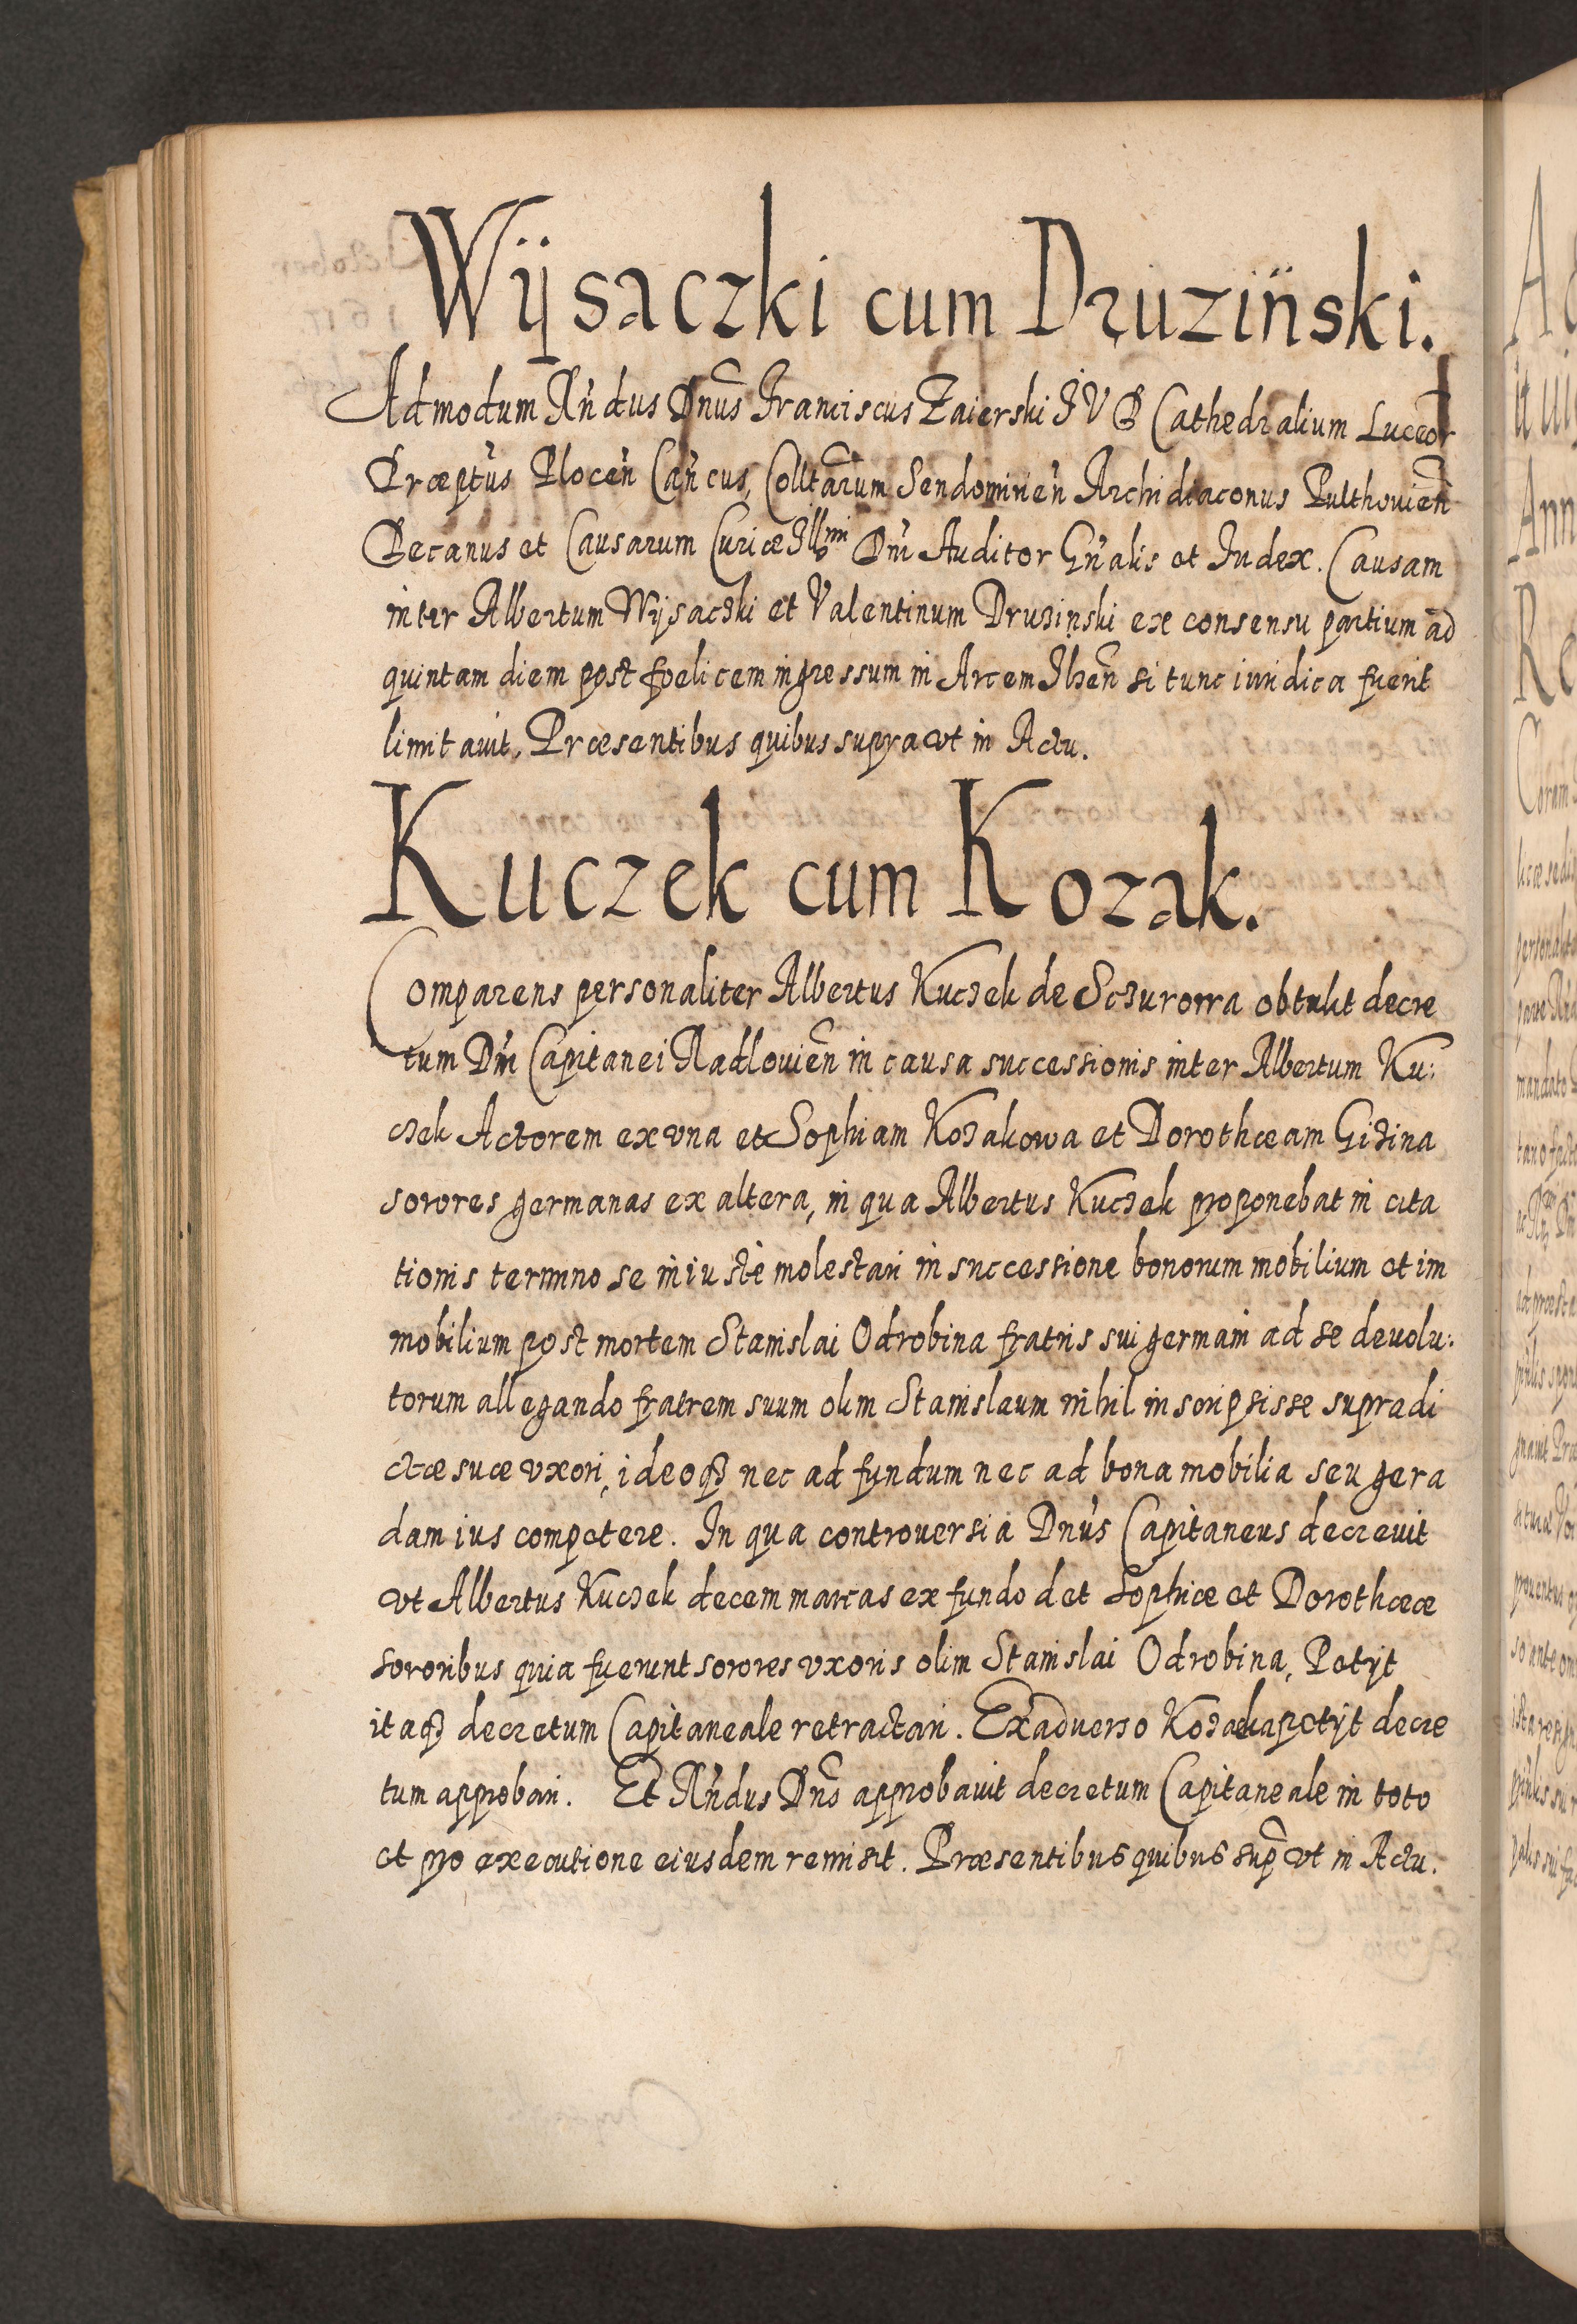 Wÿsaczki cum Druzinski.
Admodum Rn̄dus Dnūs Franciscus Zaierski I V D Cathedralium Luceor̄
Præptūs Plocen̄ Can̄cus, Colltārum Sendomirien̄ Archidiaconus Pulthovien̄
Decanus et Causarum Curiæ Illmi Dn̄i Auditor Gn̄alis et Iudex. Causam
inter Albertum Wÿsaczki et Valentinum Druzinski ex consensu partium ad
quintam diem post foelicem ingressum in Arcem Ilzen̄ si tunc iuridica fuerit
limitavit. Præsentibus quibus supra vt in Actu.
Kuczek cum Kozak.
Comparens personaliter Albertus Kuczek de Sczurowa obtulit decre
tum Dn̄i Capitanei Radlovien̄ in causa successionis inter Albertum Ku:
czek Actorem ex vna et Sophiam Kozakowa et Dorothæam Gizina
sorores germanas ex altera, in qua Albertus Kuczek proponebat in cita
tionis termino se iniustè molestari in successione bonorum mobilium et im
mobilium post mortem Stanislai Odrobina fratris sui germani ad se devolu:
torum allegando fratrem suum olim Stanislaum nihil inscripsisse supradi
ctæ suæ vxori, ideoq3 nec ad fundum nec ad bona mobilia seu gera
dam ius competere. In qua controversia Dnūs Capitaneus decrevit
vt Albertus Kuczek decem marcas ex fundo det Sophiæ et Dorothææ
sororibus quia fuerunt sorores vxoris olim Stanislai Odrobina, Petÿt
itaq3 decretum Capitaneale retractari. Ex adverso Kozaka petÿt decre
tum approbari. Et Rn̄dus Dn̄s approbavit decretum Capitaneale in toto
et pro executione eiusdem remisit. Præsentibus quibus sup̄ vt in Actu.